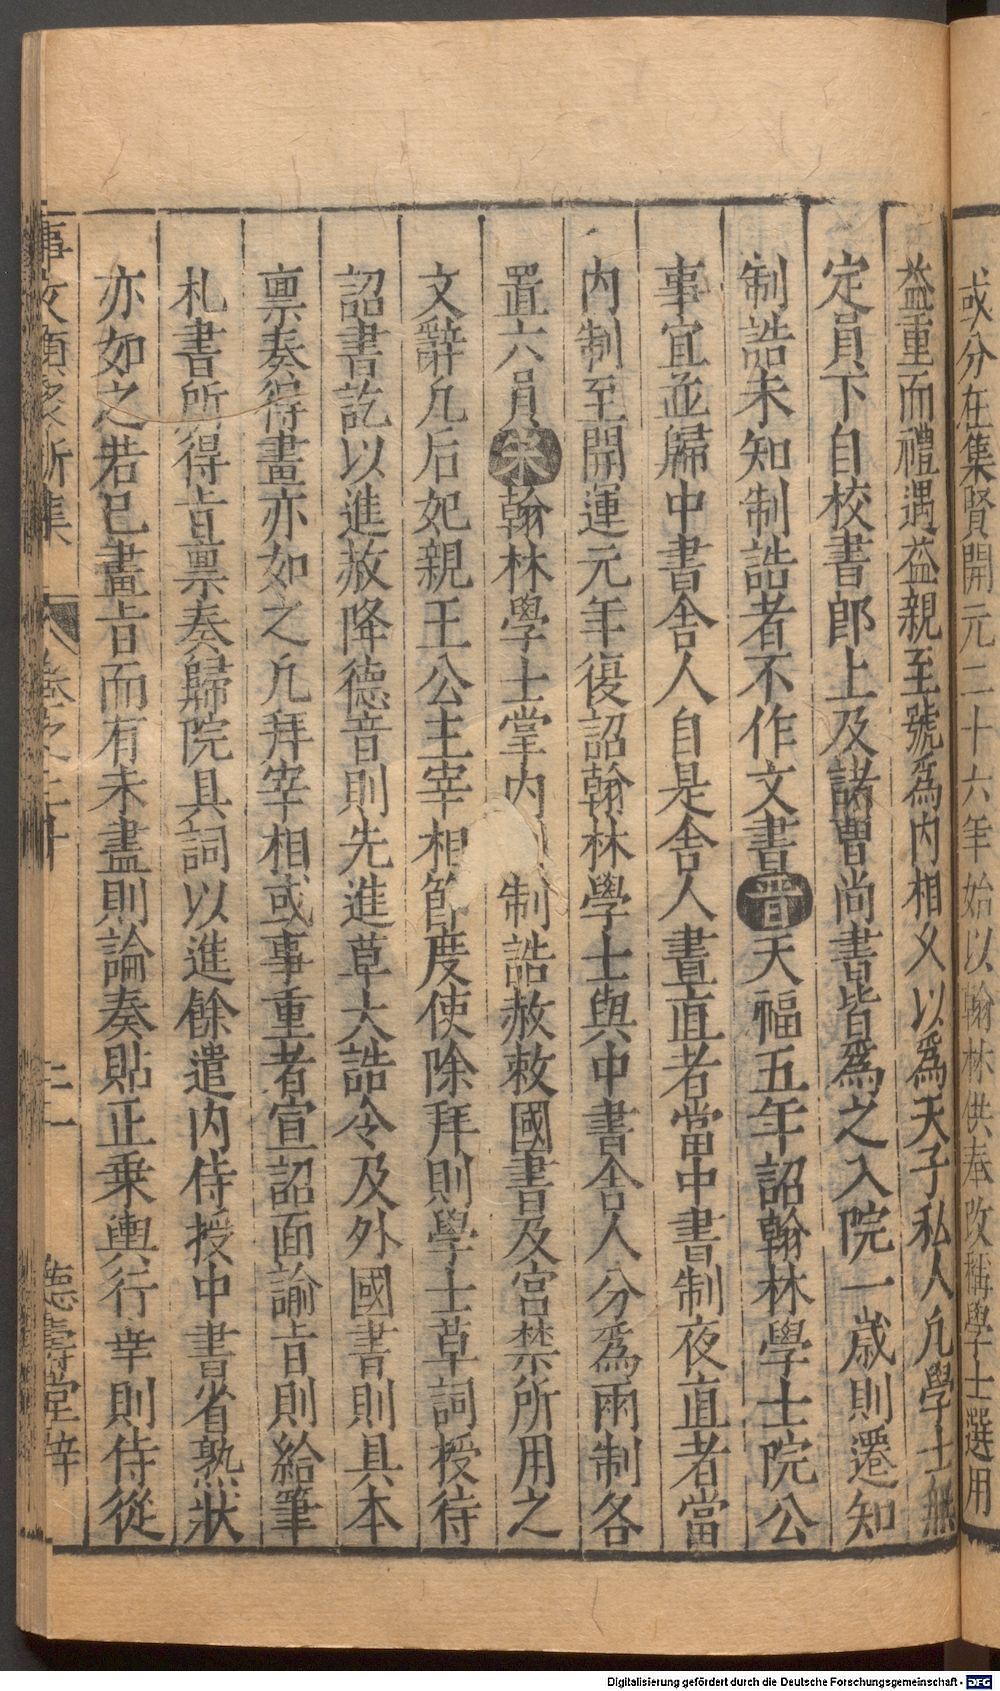 或分在集賢開元二十六年始以翰林供奉改稱學士選用
益重而禮遇益親至號為内相又以為天子私人凡學士無
定員下自校書郎上及諸曹尚書皆為之入院一歲則遷知
制誥未知制誥者不作文書晉天福五年詔翰林學士院公
事宜並歸中書舍人自是舍人晝直者當中書制夜直者當
内制至開運元年復詔翰林學士與中書舍人分為兩制各
置六員宋翰林學士掌内制誥赦敕國書及宮禁所用之
文辭凡后妃親王公主宰相節度使除拜則學士草詞授待
詔書訖以進赦降德音則先進草大誥令及外國書則具本
稟奏得畫亦如之凡拜宰相或事重者宣詔面諭旨則給筆
札書所得旨稟奏歸院具詞以進餘遣内侍授中書省熟狀
亦如之若已畫旨而有未盡則論奏貼正乗輿行幸則侍從
事文類聚新集 卷之二十 二二 德壽堂梓
Digitalisierung gefördert durch die Deutsche Forschungsgemeinschaft - DFG